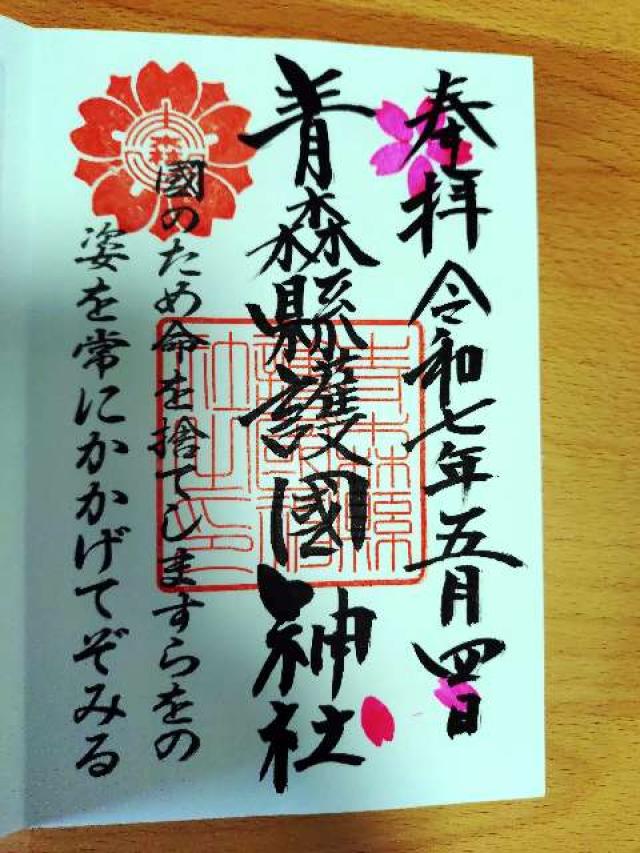 奉拝 令和七年五月四日
青森縣護國神社
國のため命を捨てしますらをの
姿を常にかかげてぞみる